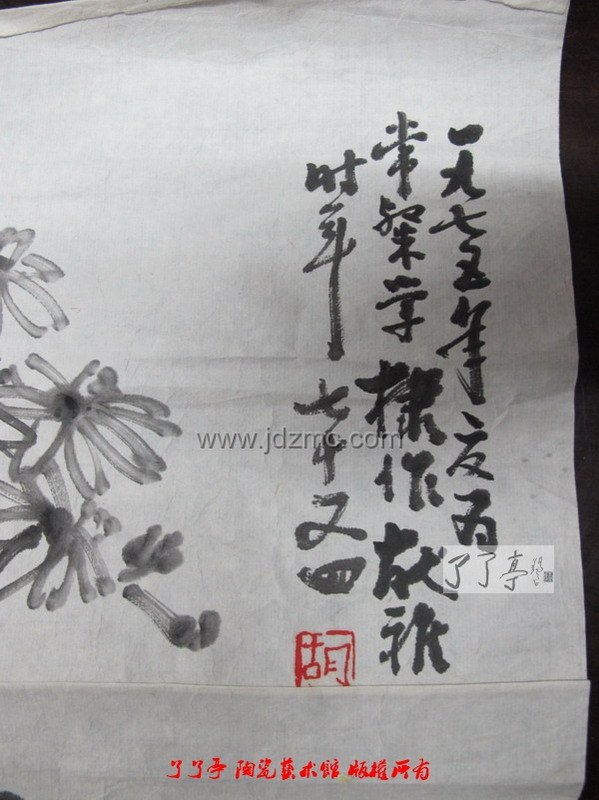 一九七五年夏为
常粲学棣作
时年七十又四
胡
www.jdzmc.com
了了亭
了了亭 陶瓷艺术馆 版权所有